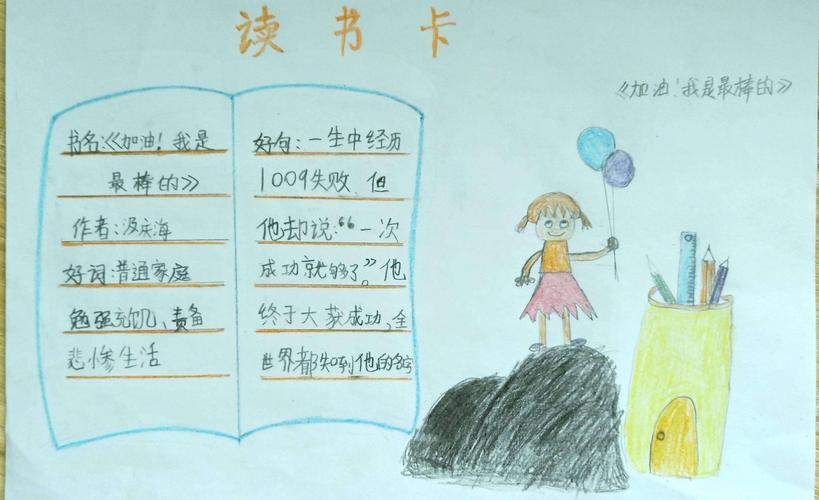 读书卡
《加油!我是最棒的》
书名:《加油!我是
最棒的》
作者:汲庆海
好词:普通家庭
勉强充饥、责备
悲惨生活
好句:一生中经历
1009失败,但
他却说:“一次
成功就够了”。他
终于大获成功,全
世界都知到他的名字